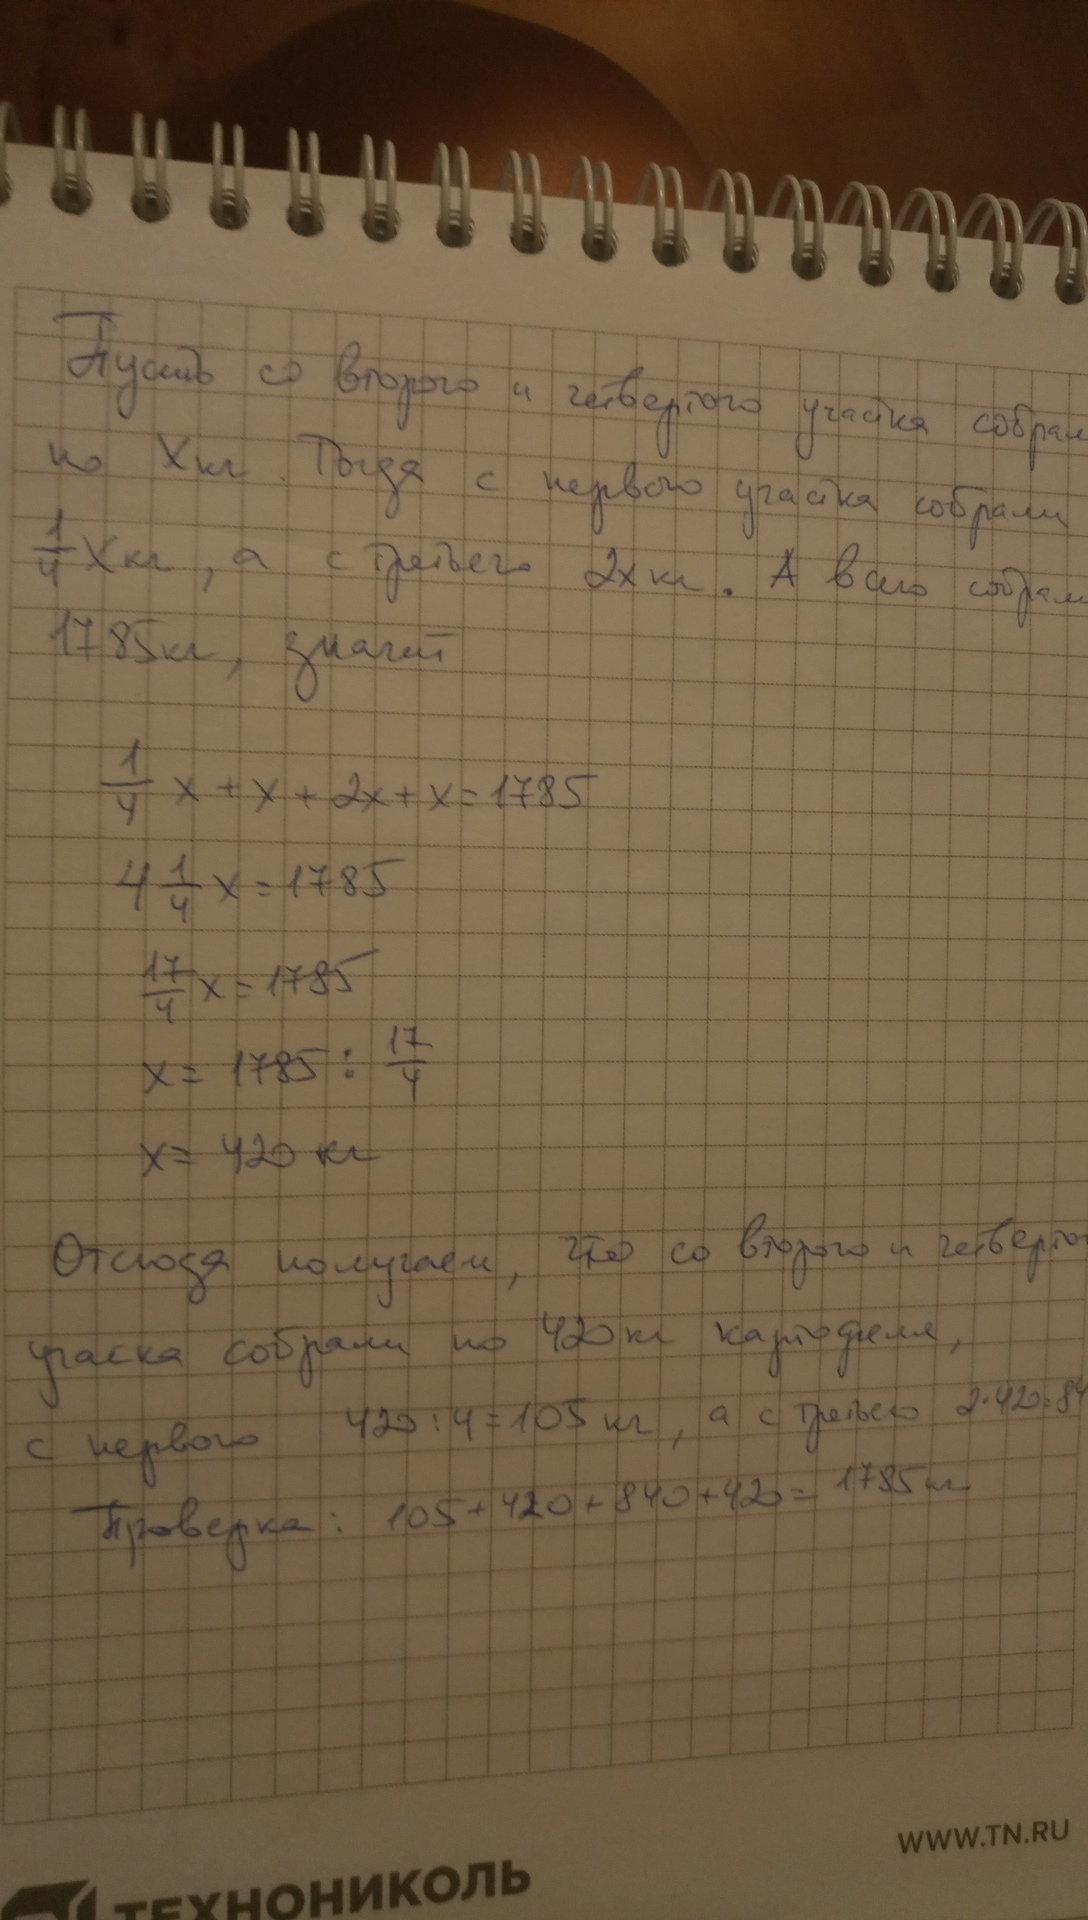 Пусть со второго и четвертого участка собрали
по X кг. Тогда с первого участка собрали
1/4 X кг, а с третьего 2x кг. А всего собрали
1785 кг, значит
1/4 x + x + 2x + x = 1785
4 1/4 x = 1785
17/4 x = 1785
x = 1785 : 17/4
x = 420 кг
Отсюда получаем, что со второго и четвертого
учаска собрали по 420 кг картофеля,
с первого 420 : 4 = 105 кг, а с третьего 2·420=84
Проверка: 105 + 420 + 840 + 420 = 1785 кг
WWW.TN.RU
ТЕХНОНИКОЛЬ